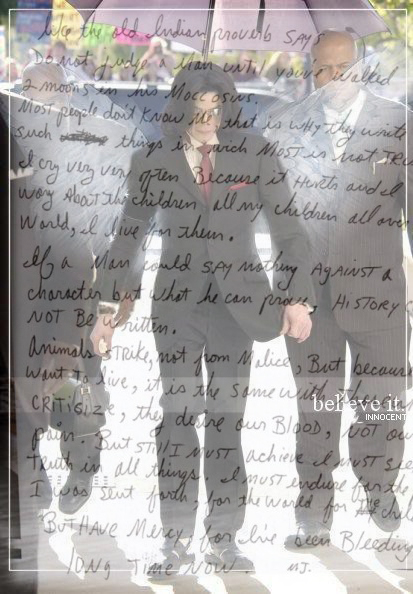 like the old Indian proverb says
Do not judge a man until you've walked
2 moons in his Moccosins.
Most people don't know me, that is why they write
such things in wich MOST is not TRUE
I cry very very often Because it Hurts and I
wory About the children all my children all over
World, I live for them.
If a Man could SAY nothing AGAINST a
character but what he can prove HISTORY
NOT Be written.
Animals strike, not from Malice, But because
Want to live, it is the same with those
CRITISIZE, they desire our BLOOD, NOT our
pain. But still I MUST achieve I must seek
Truth in all things. I must endure for the
I was sent forth, for the world for the children
But HAVE Mercy, for I've been Bleeding
long Time NOW. MJ.
believe it.
INNOCENT